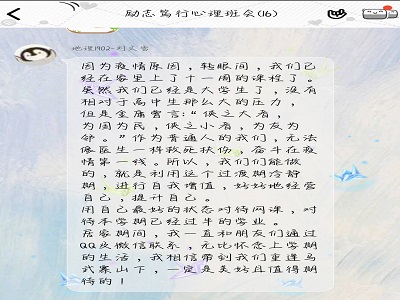 励志笃行心理班会(16)
地理1902-刘义雪
因为疫情原因，转眼间，我们已
经在家里上了十一周的课程了。
虽然我们已经是大学生了，没有
相对于高中生那么大的压力，
但是金庸曾言：“侠之大者，
为国为民，侠之小者，为友为
邻。”作为普通人的我们，无法
像医生一样救死扶伤，奋斗在疫
情第一线。所以，我们们能做
的，就是利用这个过渡期冷静
期，进行自我增值，好好地经营
自己，提升自己。
用自己最好的状态对待网课，对
待本学期已经过半的学业。
居家期间，我一直和朋友们通过
QQ及微信联系，无比怀念上学期
的生活，我相信等到我们重逢马
武寨山下，一定是美好且值得期
待的！